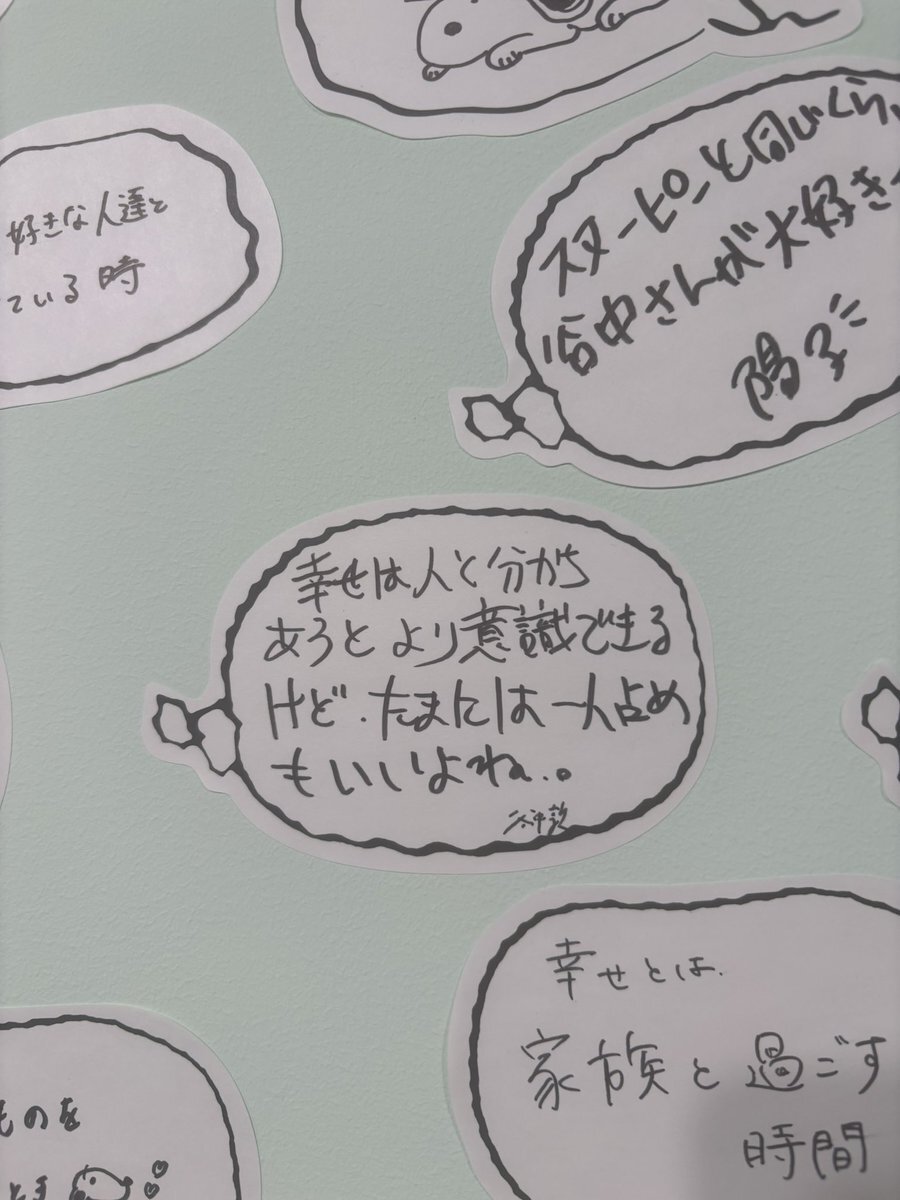 好きな人達と
ている時
スヌーピーと同じくらい
谷中さんが大好き
陽子
幸せは人と分かち
あうとより意識できる
けど.たまには一人占め
もいいよね..。
谷中敦
幸せとは.
家族と過ごす
時間
ものを
とき